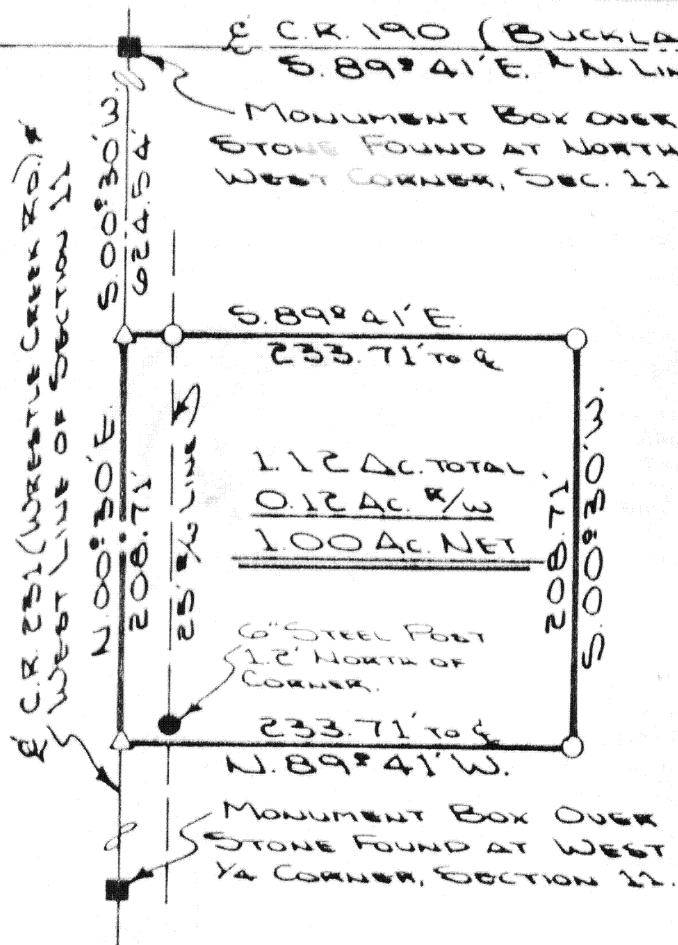 ℄ C.R. 190 (BUCKLA
S. 89° 41' E. & N. LIN
MONUMENT BOX OVER
STONE FOUND AT NORTH
WEST CORNER, SEC. 11
S. 00° 30' W.
624.54'
℄ C.R. 231 (WRESTLE CREEK RD.) &
WEST LINE OF SECTION 11
S. 89° 41' E.
233.71' TO ℄
N. 00° 30' E.
208.71'
25' R/W LINE
1.12 AC. TOTAL
0.12 AC. R/W
1.00 AC. NET
208.71'
S. 00° 30' W.
6" STEEL POST
1.2' NORTH OF
CORNER.
233.71' TO ℄
N. 89° 41' W.
MONUMENT BOX OVER
STONE FOUND AT WEST
1/4 CORNER, SECTION 11.